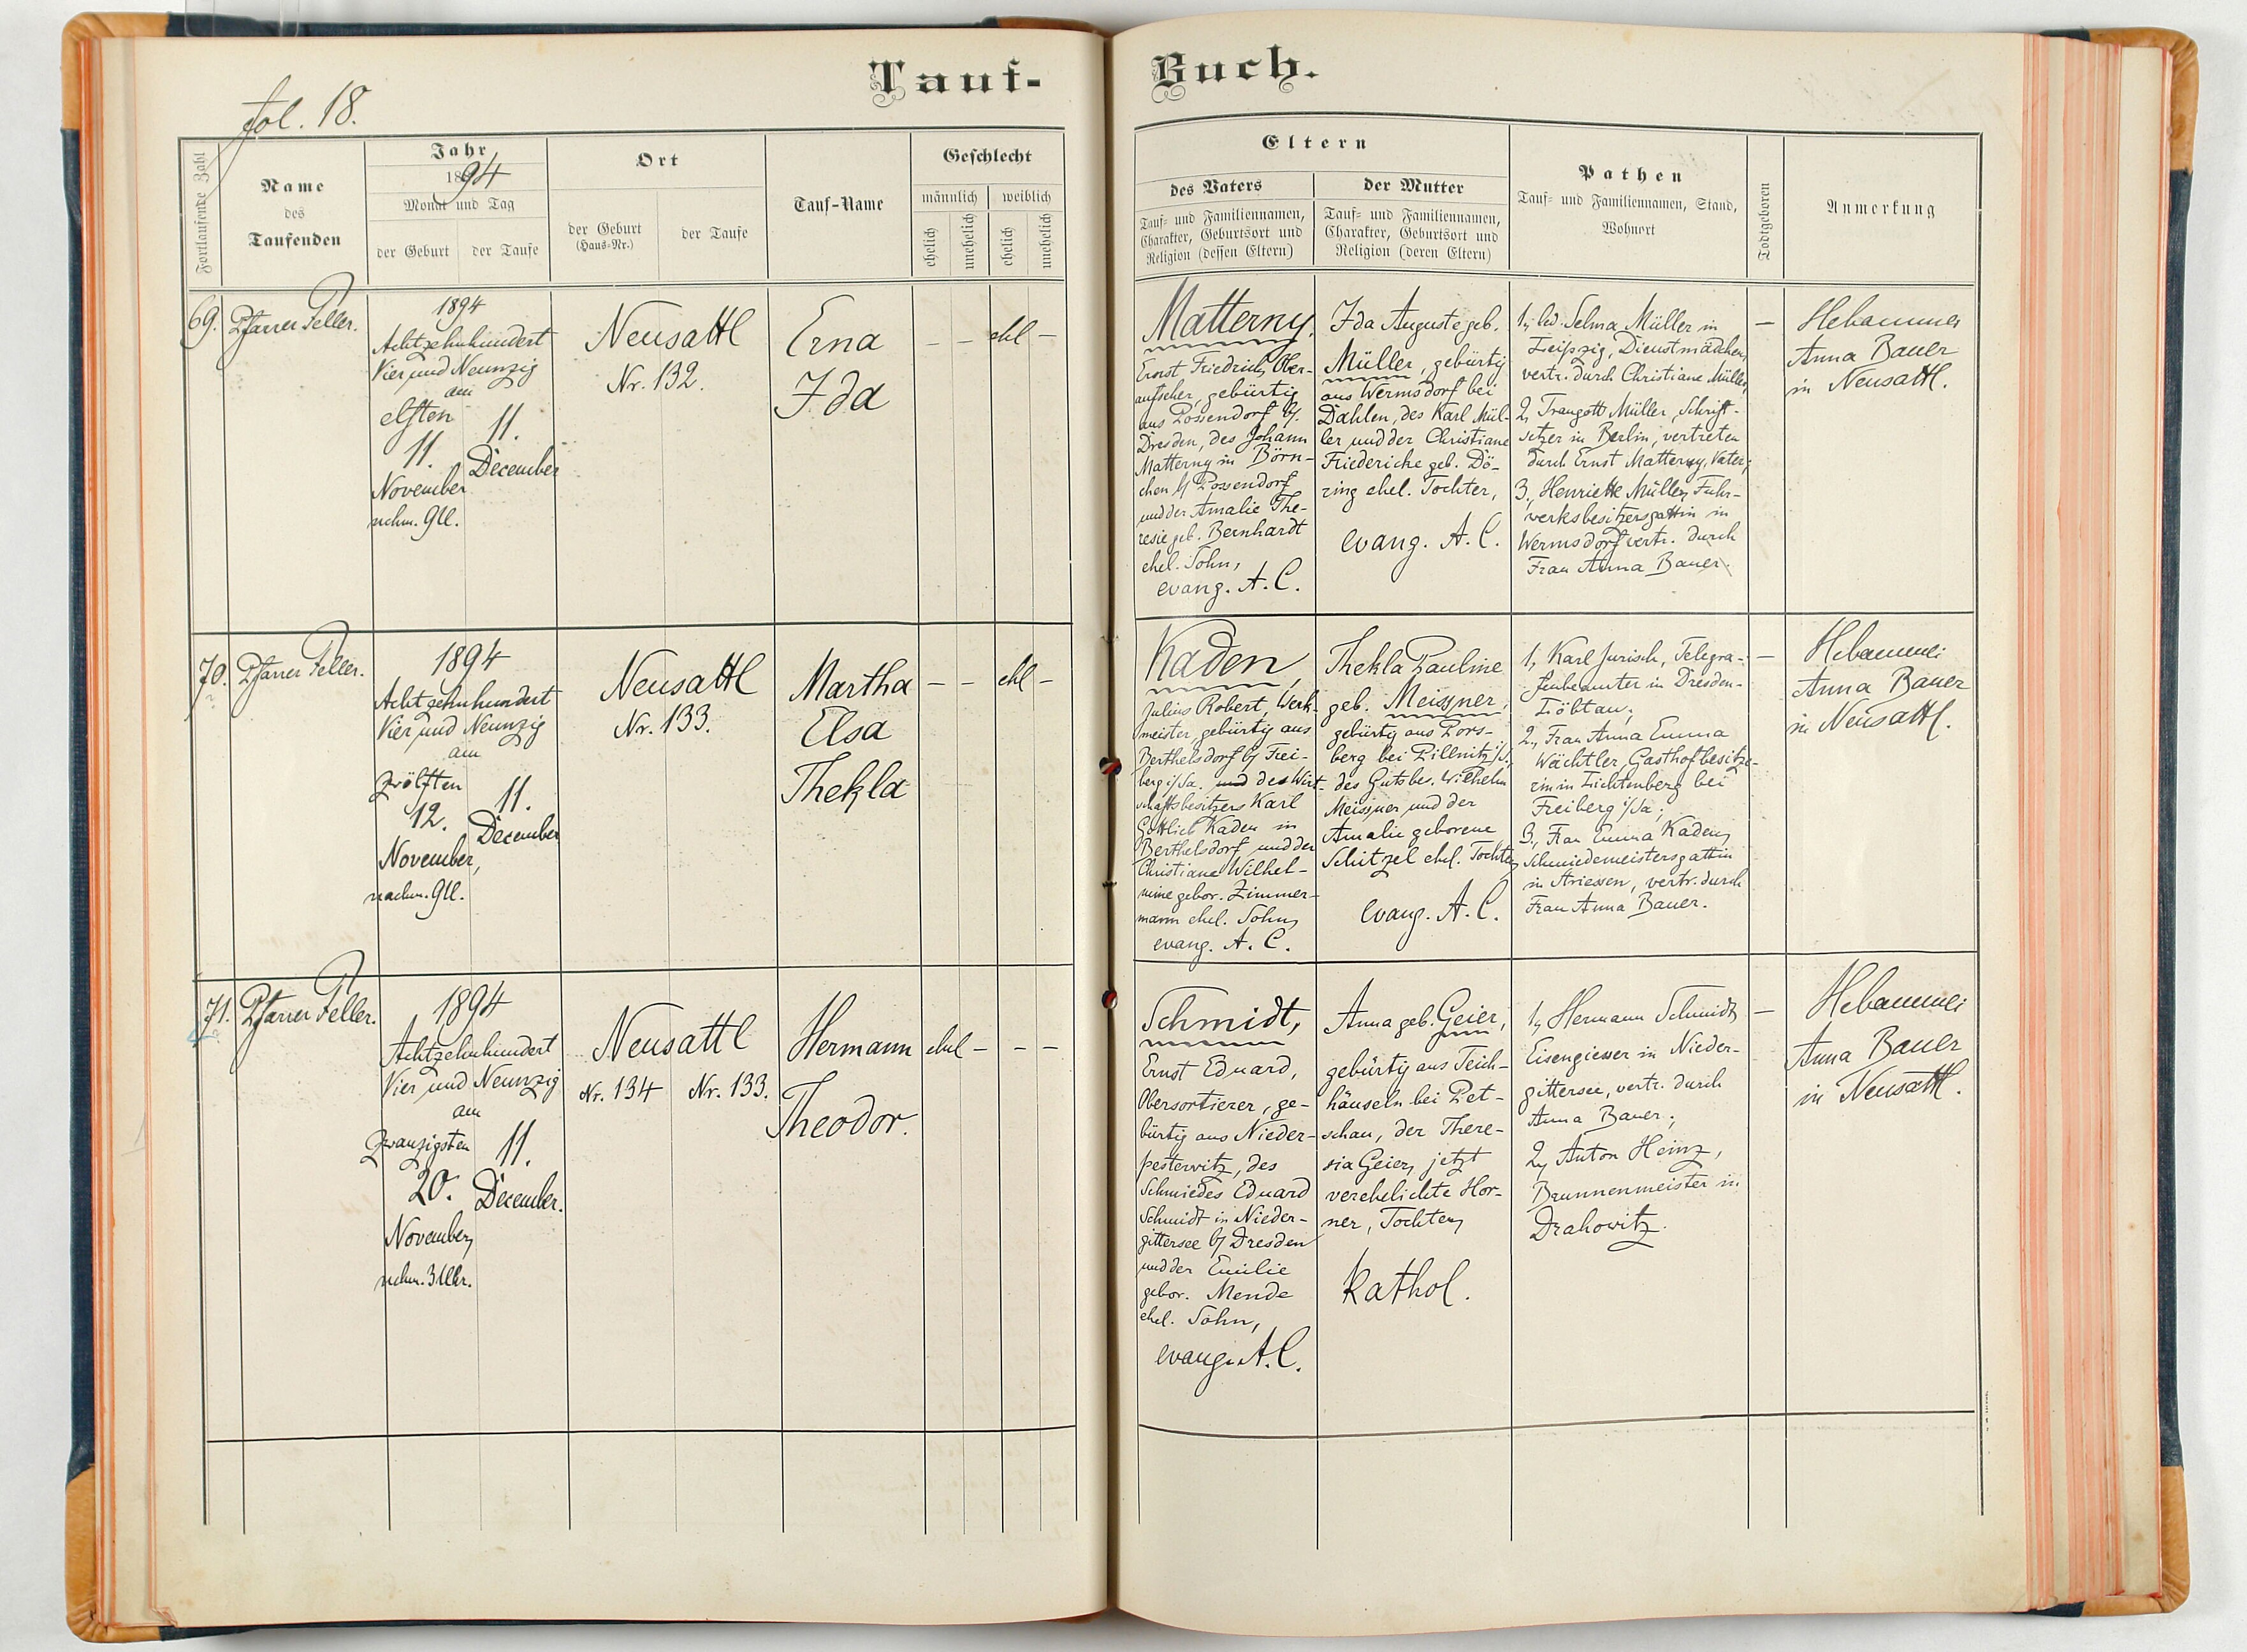 Tauf-
Buch.
fol. 18.
Fortlaufende Zahl
Name
des
Taufenden
Jahr
1894
Monat und Tag
der Geburt
der Taufe
Ort
der Geburt
(Haus-Nr.)
der Taufe
Tauf-Name
Geschlecht
männlich
weiblich
ehelich
unehelich
ehelich
unehelich
Eltern
des Vaters
Tauf- und Familiennamen,
Charakter, Geburtsort und
Religion (dessen Eltern)
der Mutter
Tauf- und Familiennamen,
Charakter, Geburtsort und
Religion (deren Eltern)
Pathen
Tauf- und Familiennamen, Stand,
Wohnort
Todtgeboren
Anmerkung
69.
Pfarrer Feller.
1894
Achtzehnhundert
Vier und Neunzig
am
elften
11.
November
nchm. 9U.
11.
December
Neusattl
Nr. 132.
Erna
Ida
— — ehl —
Matterny,
Ernst Friedrich, Ober-
aufseher, gebürtig
aus Possendorf b/.
Dresden, des Johann
Matterny in Börn-
chen b/ Possendorf
und der Amalie The-
resie geb. Bernhardt
ehel. Sohn,
evang. A. C.
Ida Auguste geb.
Müller, gebürtig
aus Wermsdorf bei
Dahlen, des Karl Mül-
ler und der Christiane
Friedericke geb. Dö-
ring ehel. Tochter,
evang. A. C.
1, led. Selma Müller in
Leipzig, Dienstmädchen,
vertr. durch Christiane Müller,
2, Traugott Müller, Schrift-
setzer in Berlin, vertreten
durch Ernst Matterny, Vater;
3., Henriette Müller, Fuhr-
werksbesitzersgattin in
Wermsdorf vertr. durch
Frau Anna Bauer.
—
Hebamme
Anna Bauer
in Neusattl.
70.
Pfarrer Feller.
1894
Achtzehnhundert
Vier und Neunzig
am
zwölften
12.
November,
nachm. 9U.
11.
December
Neusattl
Nr. 133.
Martha
Elsa
Thekla
— — ehl —
Kaden,
Julius Robert, Werk-
meister, gebürtig aus
Berthelsdorf b/ Frei-
berg i/Sa. und des Wirt-
schaftsbesitzers Karl
Gottlieb Kaden in
Berthelsdorf und der
Christiane Wilhel-
mine gebor. Zimmer-
mann ehel. Sohn,
evang. A. C.
Thekla Pauline
geb. Meissner,
gebürtig aus Pors-
berg bei Pillnitz i/S,
des Gutsbes. Wilhelm
Meissner und der
Amalie geborene
Schitzel ehel. Tochter,
evang. A. C.
1, Karl Jurisch, Telegra-
fenbeamter in Dresden-
Löbtau;
2., Frau Anna Emma
Wächtler, Gasthofbesitze-
rin in Lichtenberg bei
Freiberg i/Sa;
3., Frau Emma Kaden,
Schmiedemeistersgattin
in Striessen, vertr. durch
Frau Anna Bauer.
—
Hebamme:
Anna Bauer
in Neusattl.
71.
Pfarrer Feller.
1894
Achtzehnhundert
Vier und Neunzig
am
zwanzigsten
20.
November,
nchm. 3 Uhr.
11.
December.
Neusattl
Nr. 134
Nr. 133.
Hermann
Theodor.
ehel — — —
Schmidt,
Ernst Eduard,
Obersortierer, ge-
bürtig aus Nieder-
pesterwitz, des
Schmiedes Eduard
Schmidt in Nieder-
gittersee b/ Dresden
und der Emilie
gebor. Mende
ehel. Sohn,
evang. A. C.
Anna geb. Geier,
gebürtig aus Teich-
häuseln bei Pet-
schau, der There-
sia Geier, jetzt
verehelichte Hor-
ner, Tochter,
Kathol.
1, Hermann Schmidt,
Eisengiesser in Nieder-
gittersee, vertr. durch
Anna Bauer;
2, Anton Heinz,
Brunnenmeister in
Drahowitz.
—
Hebamme:
Anna Bauer
in Neusattl.